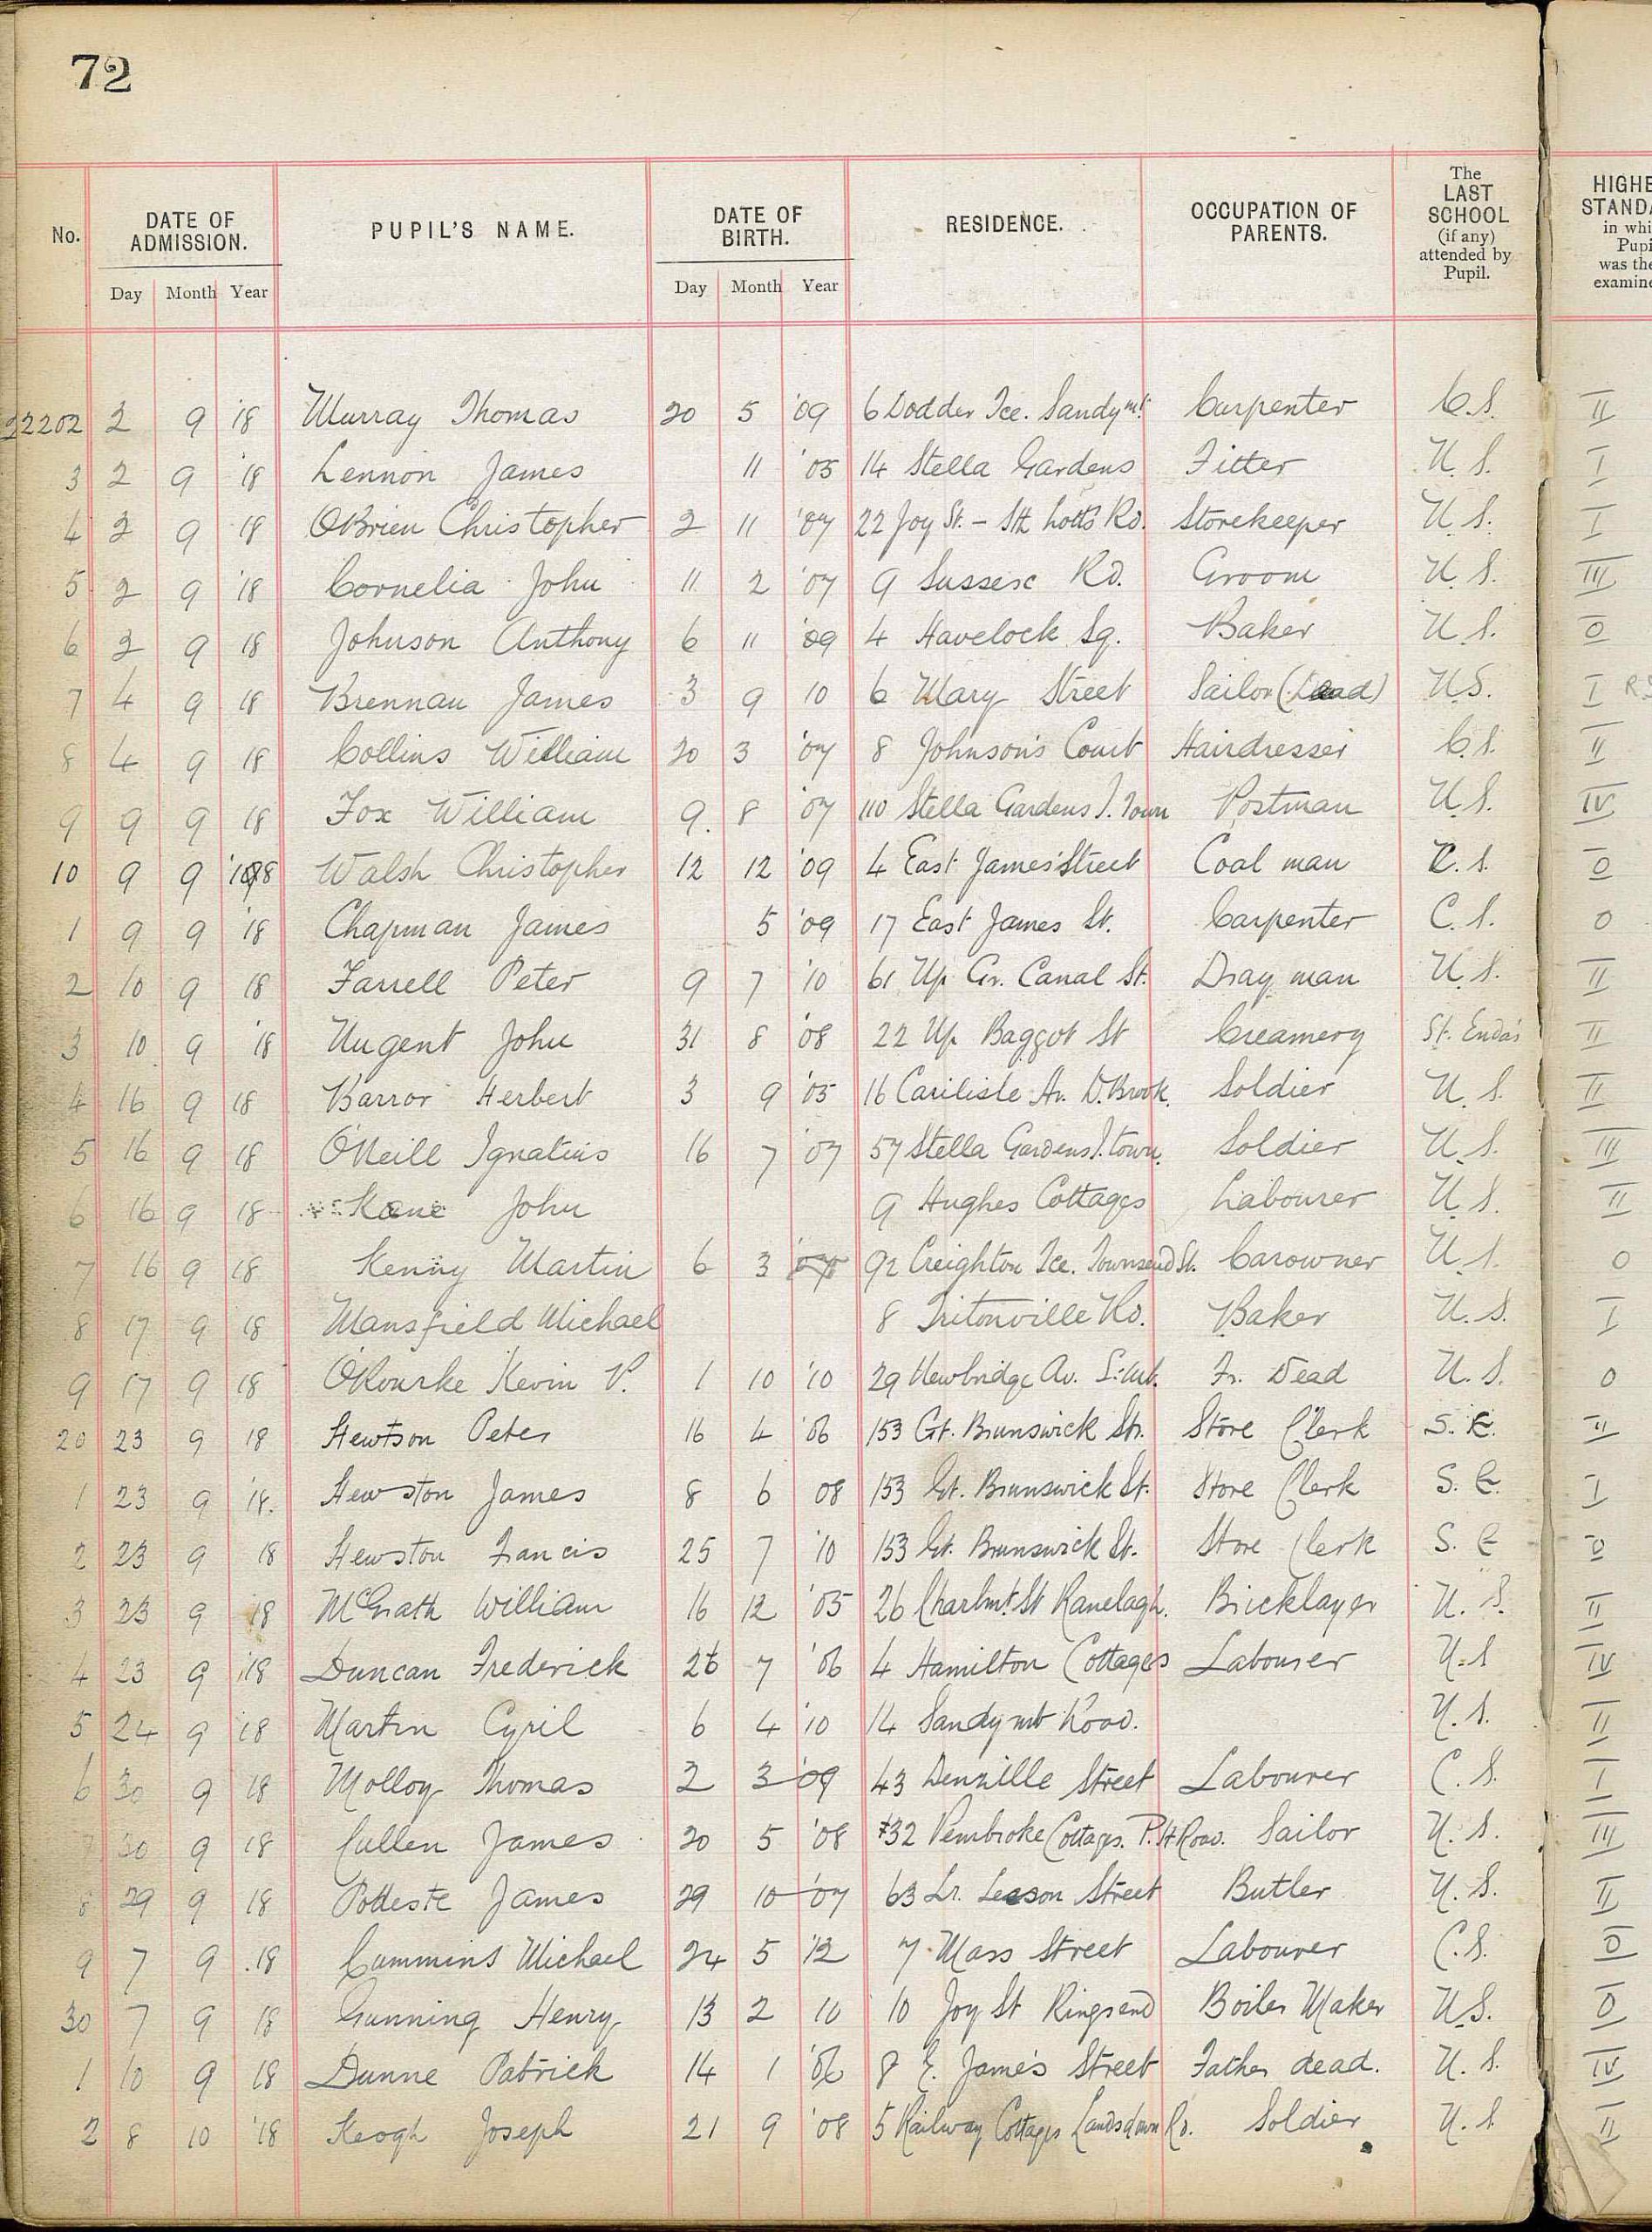 72
No. DATE OF ADMISSION. PUPIL'S NAME. DATE OF BIRTH. RESIDENCE. OCCUPATION OF PARENTS. The LAST SCHOOL (if any) attended by Pupil. HIGHE STANDA in whi Pupi was the examine
Day Month Year Day Month Year
22202 2 9 '18 Murray Thomas 20 5 '09 6 Dodder Tce. Sandymt. Carpenter C.S. II
3 2 9 '18 Lennon James 11 '05 14 Stella Gardens Fitter U.S. I
4 2 9 18 O'Brien Christopher 2 11 '07 22 Joy St. - Sth Lotts Rd. Storekeeper U.S. I
5 2 9 '18 Cornelia John 11 2 '07 9 Sussex Rd. Groom U.S. III
6 2 9 18 Johnson Anthony 6 11 '09 4 Havelock Sq. Baker U.S. 0
7 4 9 18 Brennan James 3 9 10 6 Mary Street Sailor (Dead) U.S. I
8 4 9 18 Collins William 20 3 '07 8 Johnson's Court Hairdresser C.S. II
9 9 9 18 Fox William 9. 8 '07 110 Stella Gardens I. Town Postman U.S. IV
10 9 9 Walsh Christopher 12 12 '09 4 East James' Street Coal man C.S. 0
1 9 9 '18 Chapman James 5 '09 17 East James St. Carpenter C.S. 0
2 10 9 18 Farrell Peter 9 7 '10 61 Up Gr. Canal St. Dray man U.S. II
3 10 9 '18 Nugent John 31 8 '08 22 Up Baggot St Creamery St. Enda's II
4 16 9 18 Barror Herbert 3 9 '05 16 Carilisle Av. D.Brook. Soldier U.S. II
5 16 9 18 O'Neill Ignatius 16 7 '07 57 Stella Gardens I.town. Soldier U.S. III
6 16 9 18 Kane John 9 Hughes Cottages Labourer U.S. II
7 16 9 18 Kenny Martin 6 3 92 Creighton Tce. Townsend St. Carowner U.S. 0
8 17 9 18 Mansfield Michael 8 Tritonville Rd. Baker U.S. I
9 17 9 18 O'Rourke Kevin P. 1 10 '10 29 Newbridge Av. S. Mt. Fr. Dead U.S. 0
20 23 9 18 Hewtson Peter 16 4 '06 153 Gt. Brunswick Str. Store Clerk S. II
1 23 9 '18. Hewston James 8 6 08 153 Gt. Brunswick St. Store Clerk S. E. I
2 23 9 18 Hewston Francis 25 7 '10 153 Gt. Brunswick St. Store Clerk S. E 0
3 23 9 18 McGrath William 16 12 '05 26 Charlmt. St Ranelagh. Bricklayer U.S. II
4 23 9 '18 Duncan Frederick 26 7 '06 4 Hamilton Cottages Labourer U.S IV
5 24 9 '18 Martin Cyril 6 4 '10 14 Sandymt Road. U.S. II
6 30 9 18 Molloy Thomas 2 3 '09 43 Denzille Street Labourer C.S. I
7 30 9 18 Cullen James 20 5 '08 32 Pembroke Cottages. P. St Road. Sailor U.S. III
8 29 9 18 Podeste James 29 10 '07 63 Lr. Leeson Street Butler U.S. II
9 7 9 .18 Cummins Michael 24 5 '12 7 Mass Street Labourer C.S. 0
30 7 9 18 Gunning Henry 13 2 10 10 Joy St Ringsend Boiler Maker U.S. 0
1 10 9 18 Dunne Patrick 14 1 '06 8 E. James's Street Father dead. U.S. IV
2 8 10 '18 Keogh Joseph 21 9 '08 5 Railway Cottages Landsdown Rd. Soldier U.S. II